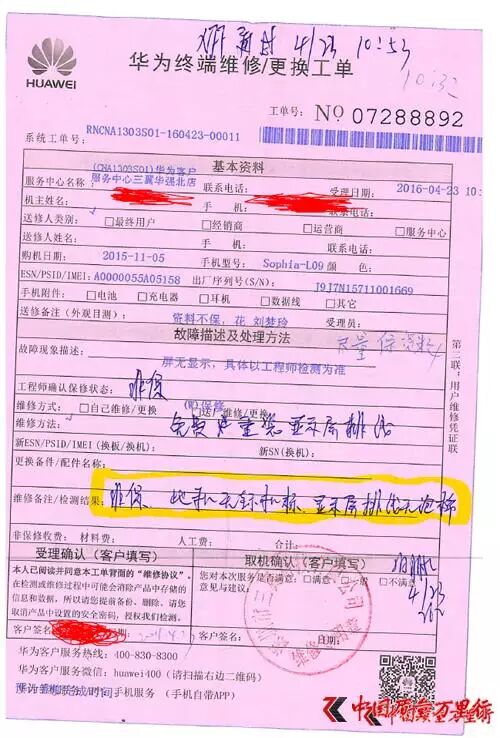 4/23 10:53
HUAWEI
华为终端维修/更换工单
10:32
工单号: NO 07288892
系统工单号: RNCNA1303S01-160423-00011
基本资料
(CNA1303S01)华为客户
服务中心名称: 服务中心三翼华强北店 联系电话: 受理日期: 2016-04-23 10:
机主姓名: 手 机: 联系电话:
送修人类别: □最终用户 □经销商 □运营商 □服务中心
送修人姓名: 手 机:
购机日期: 2015-11-05 手机型号: Sophia-L09 颜 色:
ESN/PSID/IMEI: A0000055A05158 出厂序列号(S/N): J9J7N15711001669
手机附件: □电池 □充电器 □耳机 □数据线 □其它
送修备注(外观目测): 资料不保,花 刘梦玲 受理员:
故障描述及处理方法
尽量保资料
故障现象描述: 屏无显示,具体以工程师检测为准
工程师确认保修状态: 非保
(W)保修
维修方式: □自己维修/更换 □送厂维修/更换
维修方法: 免费 重装显示屏排线
新ESN/PSID/IMEI(换板/换机): 新SN(换机):
更换备件/配件名称:
维修备注/检测结果: 非保、此机无标、显示屏排线无
非保修收费: 材料费: 人工费: 合计:
受理确认(客户填写)
本人已阅读并同意本工单背面的“维修协议”。
在检测或维修过程中可能会消除产品中存储的
信息和数据,所以请您提前备份、删除。请您
取消产品中设置的安全密码,授权我们检测。
客户签名: 日期: 2016.4.23
取机确认(客户填写)
您对本次服务是否满意: □满意 □一般 □不满意
意见与建议:
4/23
客户签名:
华为客户服务热线: 400-830-8300
华为客户服务微信: huawei400 (请扫描右边二维码)
手机服务 (手机自带APP)
第二联:用户维修凭证联
中国质量万里行